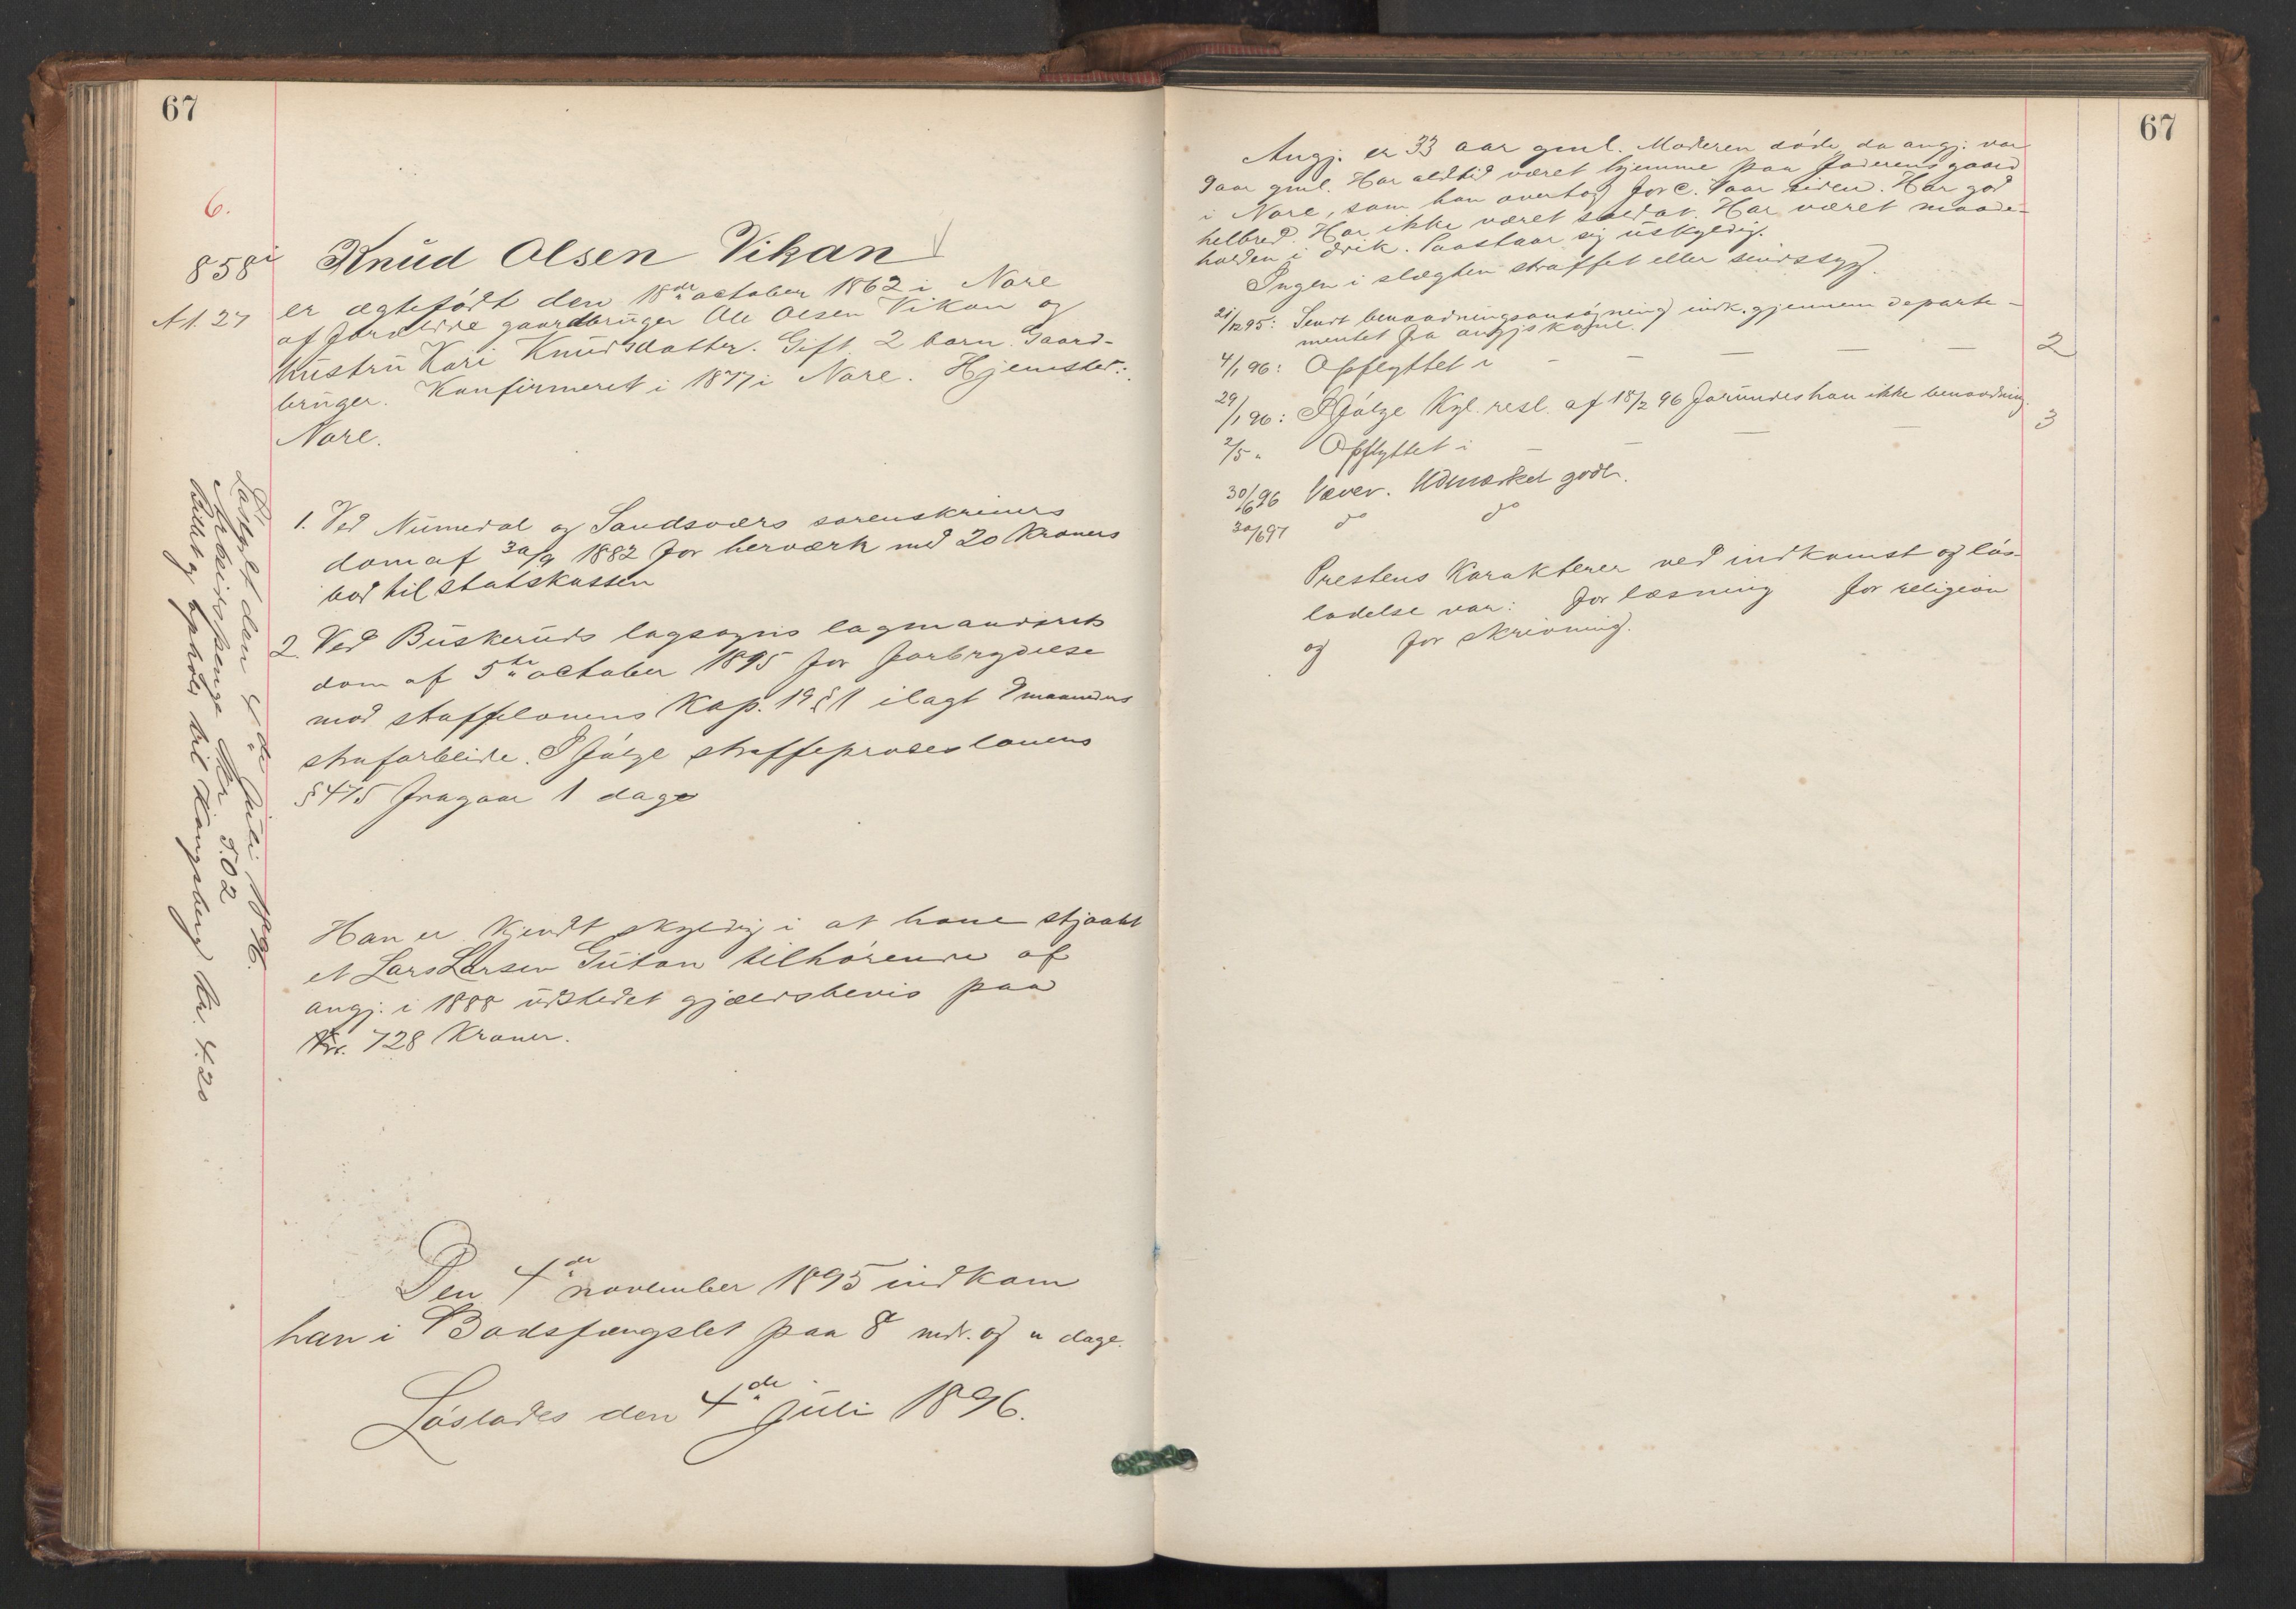 67
6.
858 i
A 1. 27
Knud Olsen Vikan
er ægtefødt den 18de october 1862 i Nore
af forældre gaardbruger Ole Olsen Vikan og
hustru Kari Knudsdatter. Gift 2 barn. Gaard-
bruger. Konfirmeret i 1877 i Nore. Hjemsted:
Nore.
1. Ved Numedal og Sandsværs sorenskrivers
dom af 30/9 1882 for herværk med 20 Kroners
bod til statskassen
2. Ved Buskeruds lagsogns lagmandsrets
dom af 5te october 1895 for forbrydelse
mod straffelovens Kap. 19 § 1 ilagt 9 maaneders
strafarbeide. I følge straffeproceslovens
§ 475 fragaar 1 dage
Han er kjendt skyldig i at have stjaalet
et Lars Larsen Gutan tilhørende af
angj. i 1888 udstedet gjældsbevis paa
Kr. 728 Kroner.
Den 4de november 1895 indkom
han i Bodsfængslet paa 8 mdr. og " dage.
Løslades den 4de juli 1896.
Løsladt den 4de juli 1896.
Arbeidspenge Kr 5.02
Billet og ophold til Kongsberg Kr. 4.20
67
Angj. er 33 aar gml. Moderen døde da angj. var
9 aar gml. Har altid været hjemme paa faderens gaard
i Nore, som han overtog for c. aar siden. Har god
helbred. Har ikke været soldat. Har været maade-
holden i drik. Paastaar sig uskyldig.
Ingen i slægten straffet eller sindssyg.
21/12 95: Sendt benaadningsansøgning indk. gjennem departe-
mentet fra angjs kone.
4/1 96: Opflyttet i — — — — — 2
29/1 96: I følge Kgl. resl. af 18/2 96 forundes han ikke benaadning.
2/5 " Opflyttet i — — — — 3
30/6 96 Væver. Udmærket godt.
30/6 97 do do
Prestens Karakterer ved indkomst og løs-
ladelse var: for læsning for religion
og for skrivning.